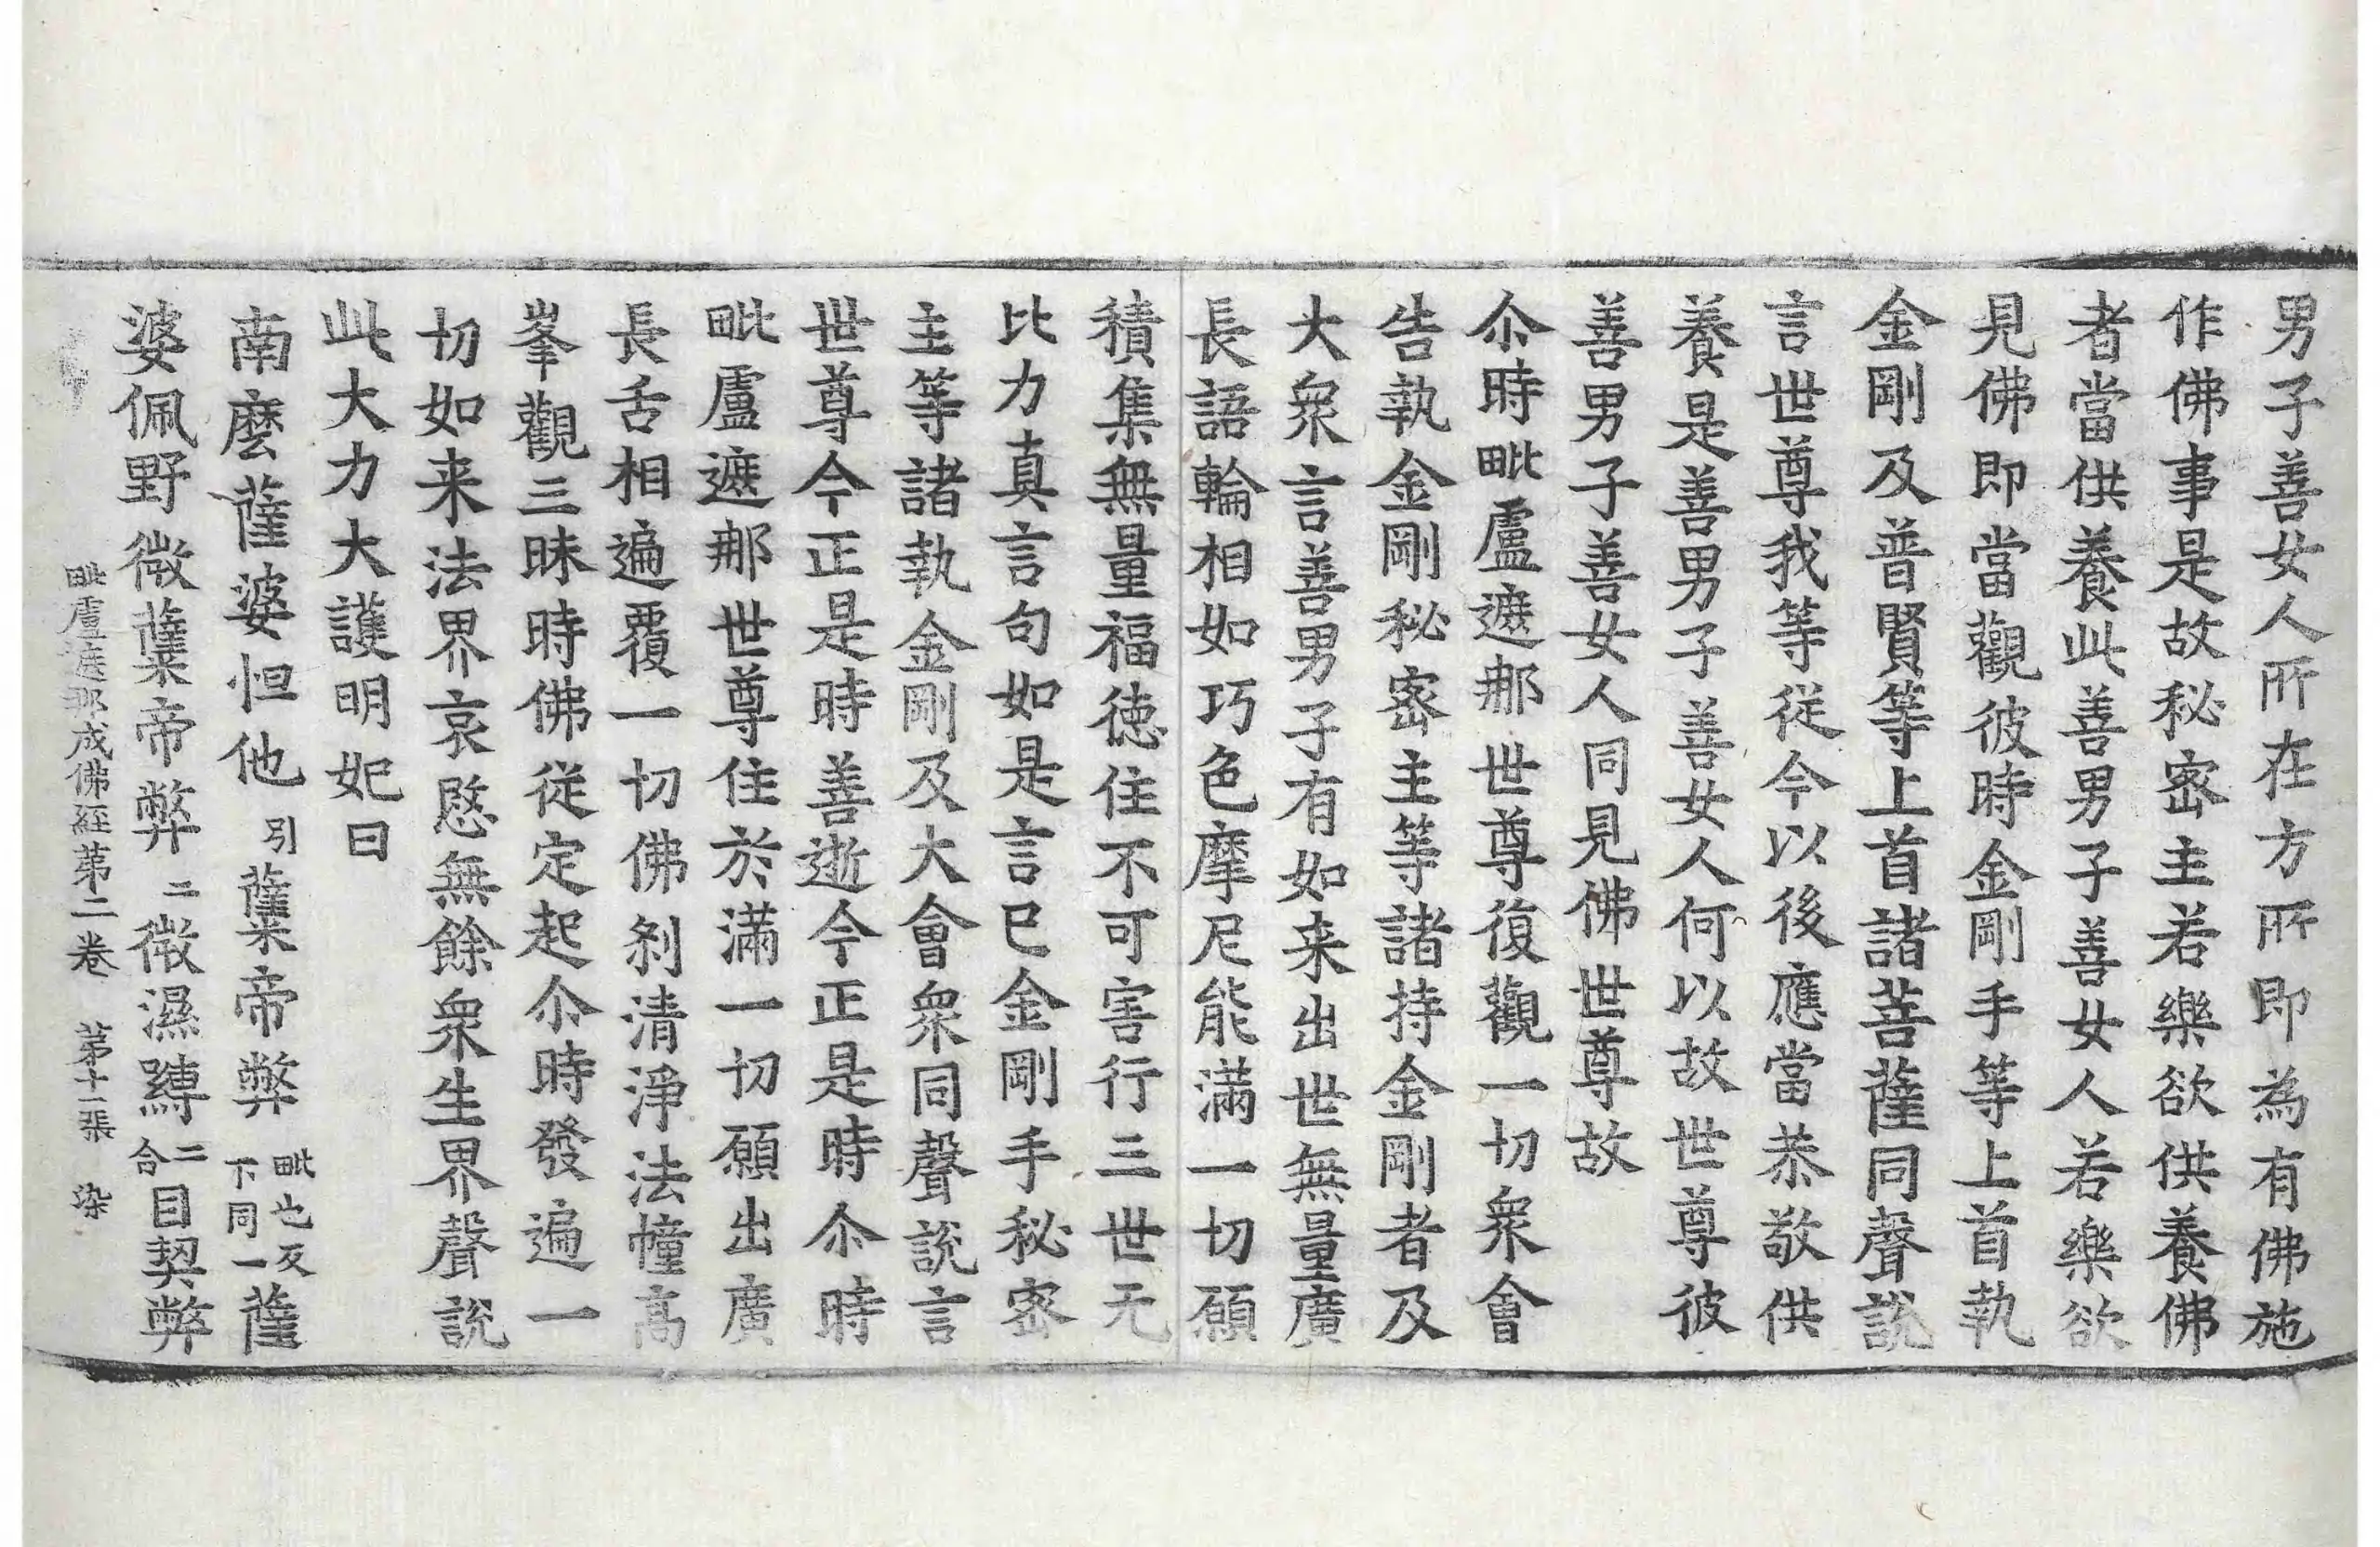 男子善女人所在方所即為有佛施
作佛事是故秘密主若樂欲供養佛
者當供養此善男子善女人若樂欲
見佛即當觀彼時金剛手等上首執
金剛及普賢等上首諸菩薩同聲說
言世尊我等従今以後應當恭敬供
養是善男子善女人何以故世尊彼
善男子善女人同見佛世尊故
尒時毗盧遮那世尊復觀一切衆會
告執金剛秘密主等諸持金剛者及
大衆言善男子有如来出世無量廣
長語輪相如巧色摩尼能滿一切願
積集無量福徳住不可害行三世无
比力真言句如是言已金剛手秘密
主等諸執金剛及大會衆同聲說言
世尊今正是時善逝今正是時尒時
毗盧遮那世尊住於滿一切願出廣
長舌相遍覆一切佛刹清淨法幢高
峯觀三昧時佛従定起尒時發遍一
切如来法界哀愍無餘衆生界聲說
此大力大護明妃曰
南麽薩婆怛他引薩帝弊毗也反下同一薩
婆佩野微蘖帝弊二微濕嚩二合目契弊
毗盧遮那成佛經第二卷 第十一張 染